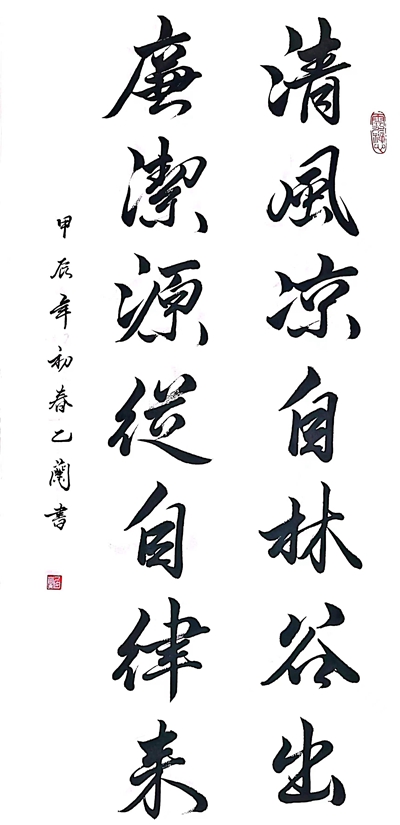 清風凉自林谷出
廉潔源從自律来
甲辰年初春乙蘭書